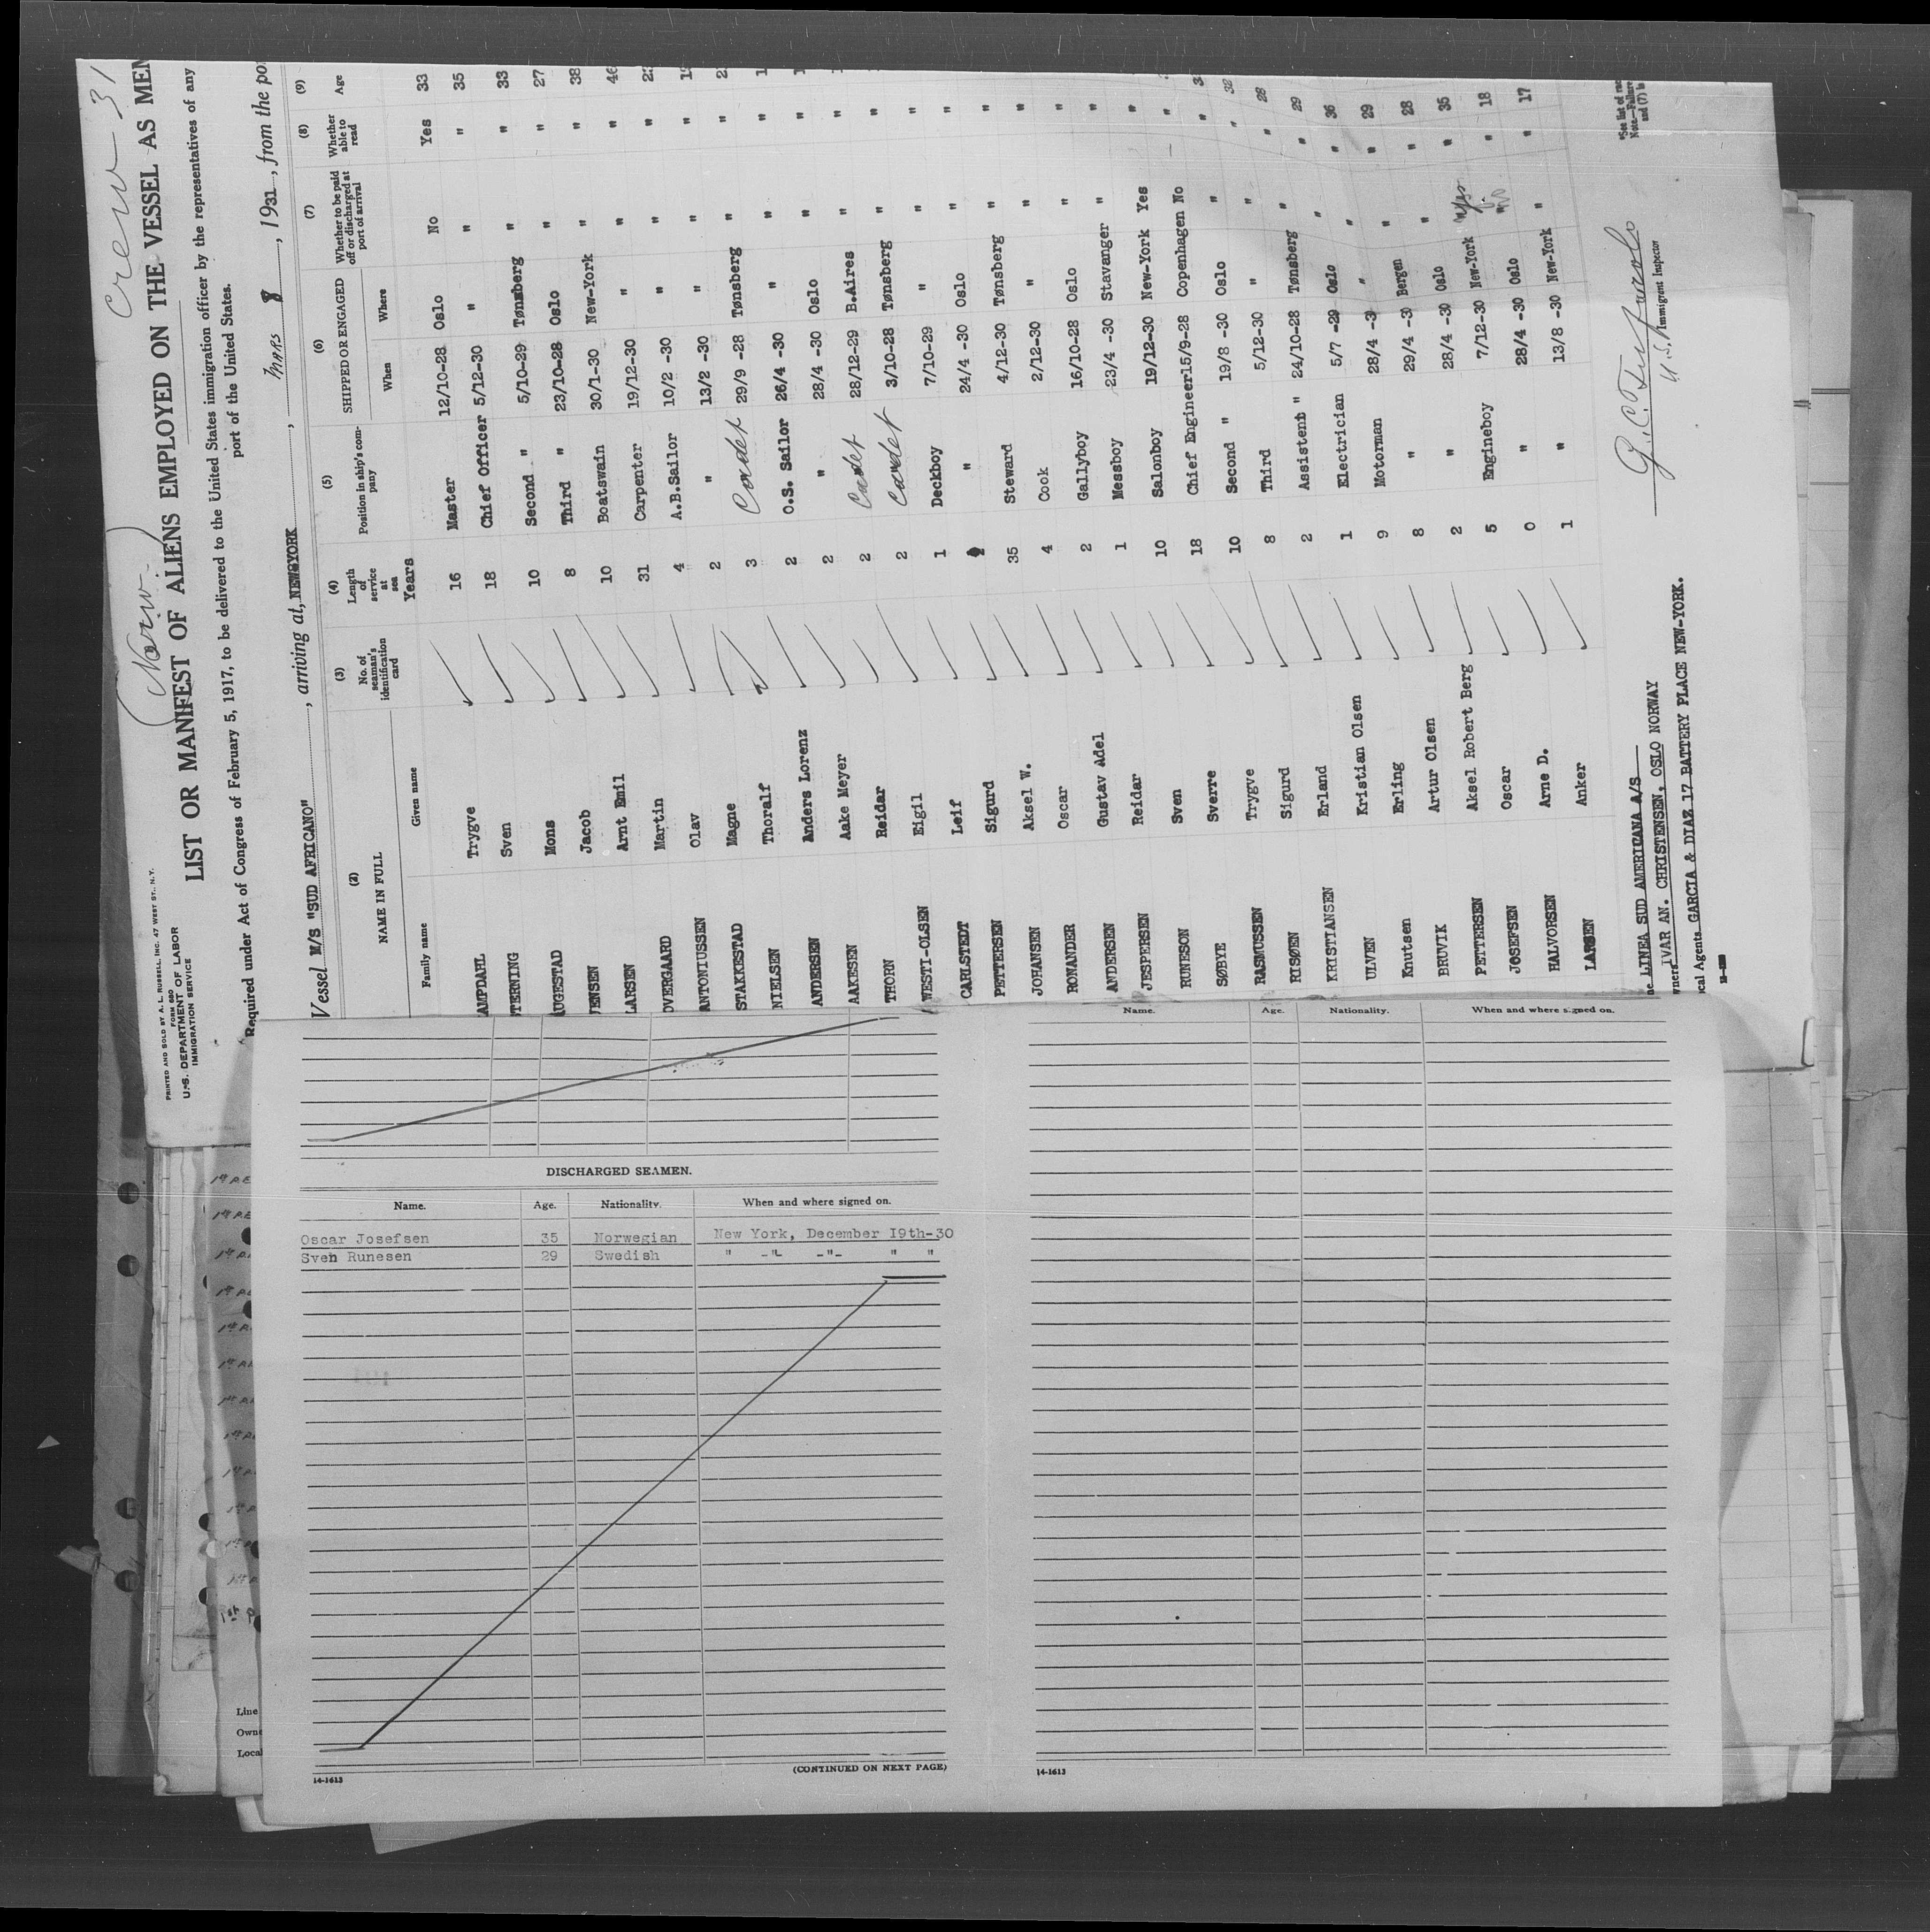 Crew 31
(Norw.)
PRINTED AND SOLD BY A. L. RUSSELL, INC. 47 WEST ST., N.Y.
FORM 680
U.S. DEPARTMENT OF LABOR
IMMIGRATION SERVICE
LIST OR MANIFEST OF ALIENS EMPLOYED ON THE VESSEL AS MEM
Required under Act of Congress of February 5, 1917, to be delivered to the United States immigration officer by the representatives of any
port of the United States.
Vessel M/S "SUD AFRICANO", arriving at, NEW YORK, Mars 8, 1931, from the po
(2) (3) (4) (5) (6) (7) (8) (9)
NAME IN FULL No. of seaman's identification card Length of service at sea Position in ship's company SHIPPED OR ENGAGED Whether to be paid off or discharged at port of arrival Whether able to read Age
Family name Given name Years When Where
AMPDAHL Trygve 16 Master 12/10-28 Oslo No Yes 33
TERNING Sven 18 Chief Officer 5/12-30 " " " 35
UGESTAD Mons 10 Second " 5/10-29 Tønsberg " " 33
JENSEN Jacob 8 Third " 23/10-28 Oslo " " 27
LARSEN Arnt Emil 10 Boatswain 30/1-30 New-York " " 38
OVERGAARD Martin 31 Carpenter 19/12-30 " " " 46
ANTONIUSSEN Olav 4 A.B.Sailor 10/2 -30 " " "
STAKKESTAD Magne 2 " 13/2 -30 " " "
NIELSEN Thoralf 3 Cadet 29/9 -28 Tønsberg " "
ANDERSEN Anders Lorenz 2 O.S. Sailor 26/4 -30 " " "
AAKESEN Aake Meyer 2 " 28/4 -30 Oslo " "
THORN Reidar 2 Cadet 28/12-29 B.Aires " "
WESTI-OLSEN Eigil 2 Cadet 3/10-28 Tønsberg " "
CARLSTEDT Leif 1 Deckboy 7/10-29 " " "
PETTERSEN Sigurd " 24/4 -30 Oslo " "
JOHANSEN Aksel W. 35 Steward 4/12-30 Tønsberg " "
RONANDER Oscar 4 Cook 2/12-30 " " "
ANDERSEN Gustav Adel 2 Gallyboy 16/10-28 Oslo " "
JESPERSEN Reidar 1 Messboy 23/4 -30 Stavanger " "
RUNESON Sven 10 Salonboy 19/12-30 New-York Yes "
SØBYE Sverre 18 Chief Engineer 15/9-28 Copenhagen No "
RASMUSSEN Trygve 10 Second " 19/8 -30 Oslo " "
RISØEN Sigurd 8 Third 5/12-30 " " " 32
KRISTIANSEN Erland 2 Assistent " 24/10-28 Tønsberg " " 28
ULVEN Kristian Olsen 1 Electrician 5/7 -29 Oslo " " 29
Knutsen Erling 9 Motorman 28/4 -3 " " " 36
BRUVIK Artur Olsen 8 " 29/4 -3 Bergen " " 29
PETTERSEN Aksel Robert Berg 2 " 28/4 -30 Oslo " " 28
JOSEFSEN Oscar 5 Engineboy 7/12-30 New-York yes " 35
HALVORSEN Arne D. 0 " 28/4 -30 Oslo No " 18
LARSEN Anker 1 " 13/8 -30 New-York " " 17
ne LINEA SUD AMERICANA A/S
wners IVAR AN. CHRISTENSEN, OSLO NORWAY
cal Agents GARCIA & DIAZ 17 BATTERY PLACE NEW-YORK.
U.S. Immigrant Inspector
*See list of rac
Note.—Failure
and (7) is
DISCHARGED SEAMEN.
Name. Age. Nationality. When and where signed on.
Oscar Josefsen 35 Norwegian New York, December 19th-30
Sven Runesen 29 Swedish " -"- -"- " "
(CONTINUED ON NEXT PAGE)
14-1613
Name. Age. Nationality. When and where signed on.
14-1613
Line
Owne
Local